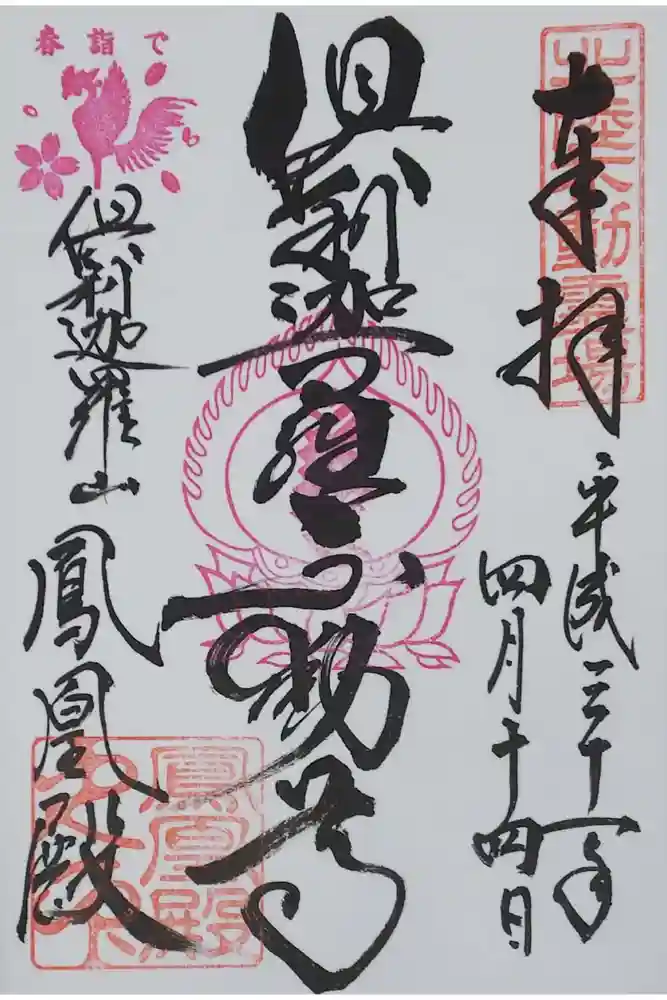 北陸不動霊場
奉拝
平成三十一年
四月十四日
倶利迦羅不動尊
春詣で
倶利迦羅山
鳳凰殿